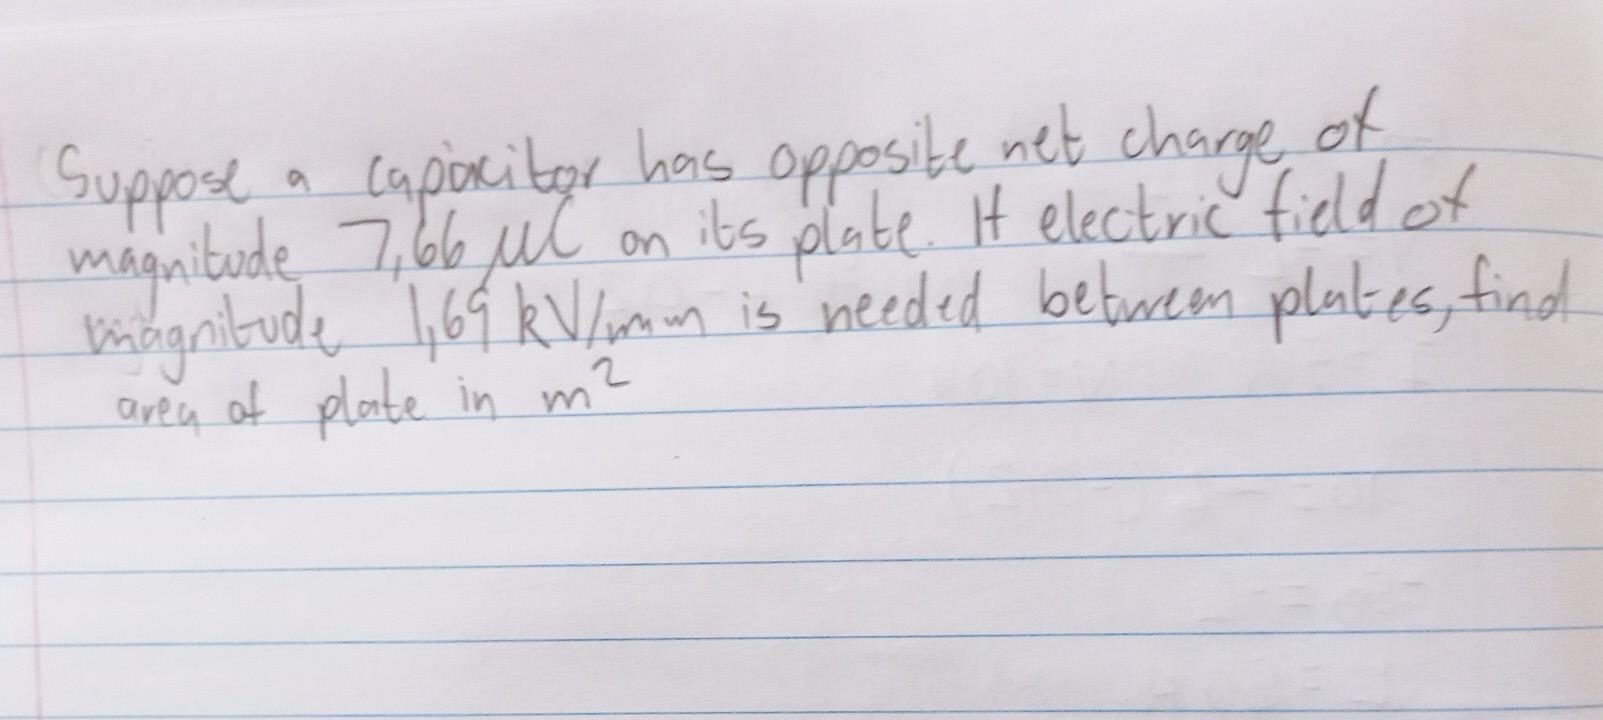 Suppose a capacitor has opposite net charge of
magnitude 7,66 μC on its plate. If electric field of
magnitude 1,69 kV/mm is needed between plates, find
area of plate in m²